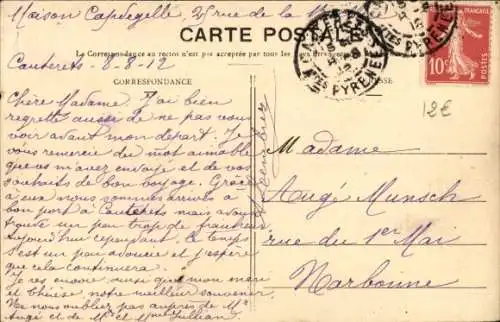 Maison Capdegelle, 25 rue de la
CARTE POSTALE
La Correspondance au recto n'est pas acceptée par tous les
Cauterets - 8-8-12
CORRESPONDANCE
Chère Madame. J'ai bien
regretté aussi de ne pas vous
voir avant mon départ. Je
vous remercie du mot aimable
que vs m'avez envoyé et de vos
souhaits de bon voyage. Grâce
à eux nous sommes arrivés à
bon port à Cauterets mais avons
trouvé un peu trop de fraîcheur
aujourd'hui cependant le temps
s'est un peu adouci et j'espère
que cela continuera.
Je vs envoie ainsi que mon mari
et Thérèse notre meilleur souvenir.
Ne nous oubliez pas auprès de Mr
Augé et de Mr et Mme Jullian
Madame
Augé Munsch
rue du 1er Mai
Narbonne
CAUTERETS
HTES PYRENEES
PYRENEES
FRANÇAISE
10c
POSTES
12€